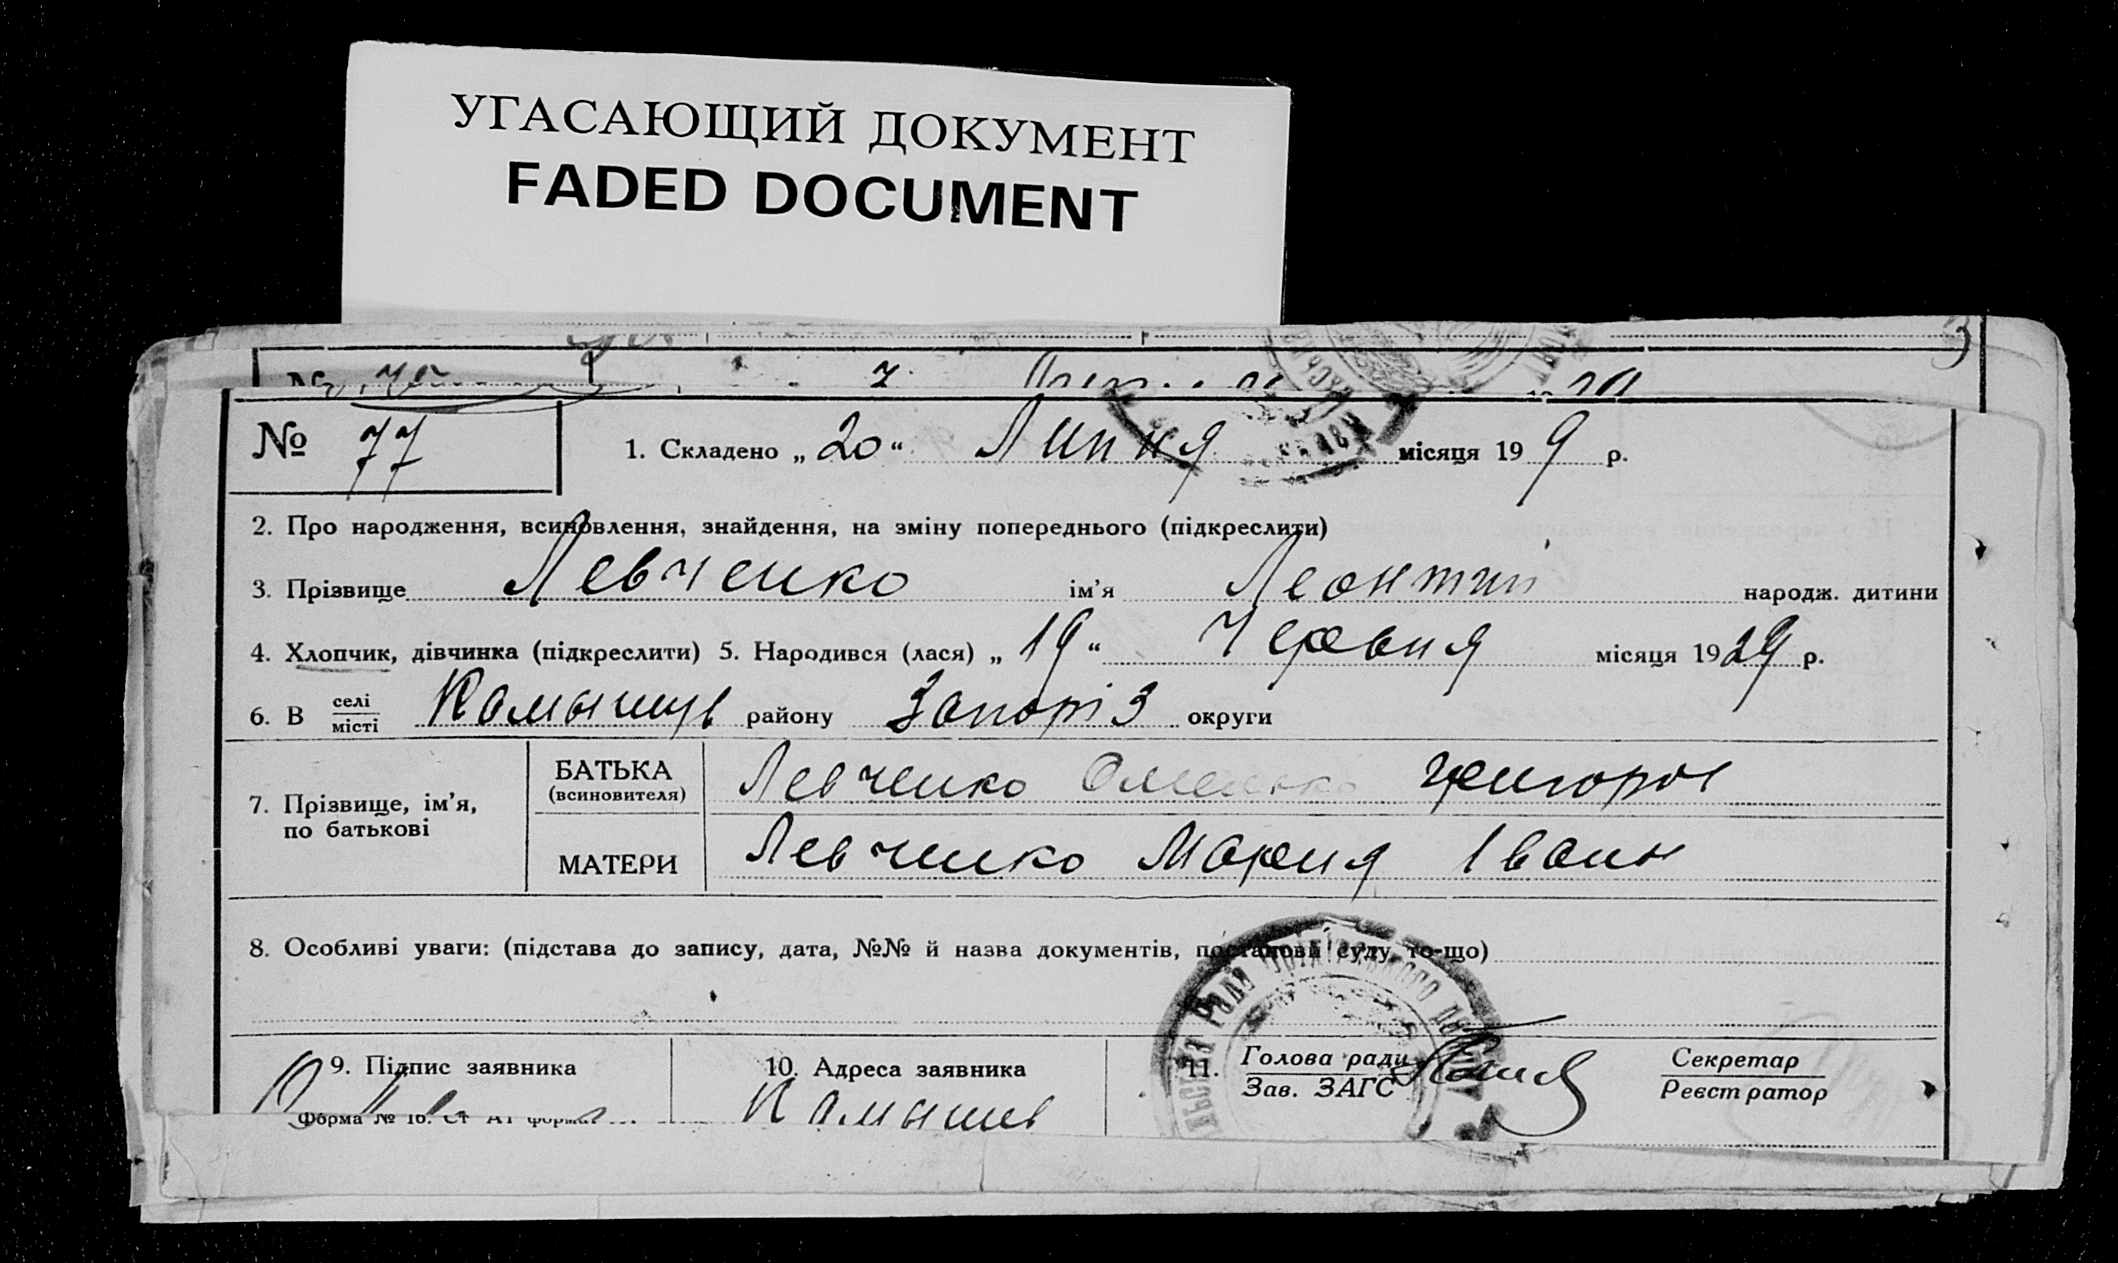 УГАСАЮЩИЙ ДОКУМЕНТ
FADED DOCUMENT
№ 77
1. Складено „ 20 “ Липня місяця 19 9 р.
2. Про народження, всиновлення, знайдення, на зміну попереднього (підкреслити)
3. Прізвище Левченко ім’я Леонтий народж. дитини
4. Хлопчик, дівчинка (підкреслити) 5. Народився (лася) „ 19 “ Червня місяця 1929 р.
6. В селі / місті Камышув району Запоріз округи
7. Прізвище, ім’я, по батькові
БАТЬКА (всиновителя) Левченко Григоров
МАТЕРИ Левченко Мария Іван
8. Особливі уваги: (підстава до запису, дата, №№ й назва документів, постанови суду то-що)
9. Підпис заявника
10. Адреса заявника
Камышев
11. Голова ради / Зав. ЗАГС
Секретар / Реєстратор
Форма № 16.